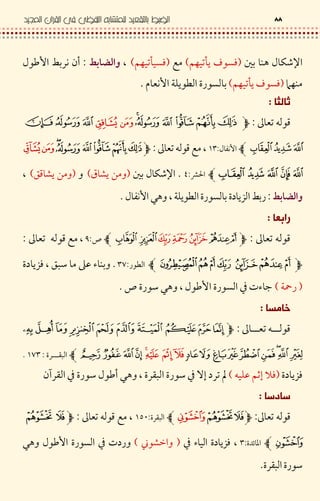 ٨٨ الضبط بالتقعيد للمتشابه اللفظي في القرآن المجيد
الإشكال هنا بين (فسوف يأتيهم) مع (فسيأتيهم) ، والضابط : أن نربط الأطول
منهما (فسوف يأتيهم) بالسورة الطويلة الأنعام .
ثالثا :
قوله تعالى : ﴿ ذَٰلِكَ بِأَنَّهُمْ شَاقُّوا۟ ٱللَّهَ وَرَسُولَهُۥ ۚ وَمَن يُشَاقِقِ ٱللَّهَ وَرَسُولَهُۥ فَإِنَّ
ٱللَّهَ شَدِيدُ ٱلْعِقَابِ ﴾ الأنفال:١٣ ، مع قوله تعالى : ﴿ ذَٰلِكَ بِأَنَّهُمْ شَاقُّوا۟ ٱللَّهَ وَرَسُولَهُۥ ۖ وَمَن يُشَآقِّ
ٱللَّهَ فَإِنَّ ٱللَّهَ شَدِيدُ ٱلْعِقَابِ ﴾ الحشر:٤ . الإشكال بين (ومن يشاق) و (ومن يشاقق) ،
والضابط : ربط الزيادة بالسورة الطويلة ، وهي الأنفال .
رابعا :
قوله تعالى : ﴿ أَمْ عِندَهُمْ خَزَآئِنُ رَحْمَةِ رَبِّكَ ٱلْعَزِيزِ ٱلْوَهَّابِ ﴾ ص:٩ ، مع قوله تعالى :
﴿ أَمْ عِندَهُمْ خَزَآئِنُ رَبِّكَ أَمْ هُمُ ٱلْمُصَۣيْطِرُونَ ﴾ الطور:٣٧ . وبناء على ما سبق ، فزيادة
( رحمة ) جاءت في السورة الأطول ، وهي سورة ص .
خامسا :
قوله تعالى : ﴿ إِنَّمَا حَرَّمَ عَلَيْكُمُ ٱلْمَيْتَةَ وَٱلدَّمَ وَلَحْمَ ٱلْخِنزِيرِ وَمَآ أُهِلَّ بِهِۦ
لِغَيْرِ ٱللَّهِ ۖ فَمَنِ ٱضْطُرَّ غَيْرَ بَاغٍ وَلَا عَادٍ فَلَآ إِثْمَ عَلَيْهِ ۚ إِنَّ ٱللَّهَ غَفُورٌ رَّحِيمٌ ﴾ البقرة : ١٧٣ .
فزيادة (فلا إثم عليه ) لم ترد إلا في سورة البقرة ، وهي أطول سورة في القرآن
سادسا :
قوله تعالى: ﴿ فَلَا تَخْشَوْهُمْ وَٱخْشَوْنِى ﴾ البقرة:١٥٠ ، مع قوله تعالى : ﴿ فَلَا تَخْشَوْهُمْ
وَٱخْشَوْنِ ﴾ المائدة:٣ ، فزيادة الياء في ( واخشوني ) وردت في السورة الأطول وهي
سورة البقرة.